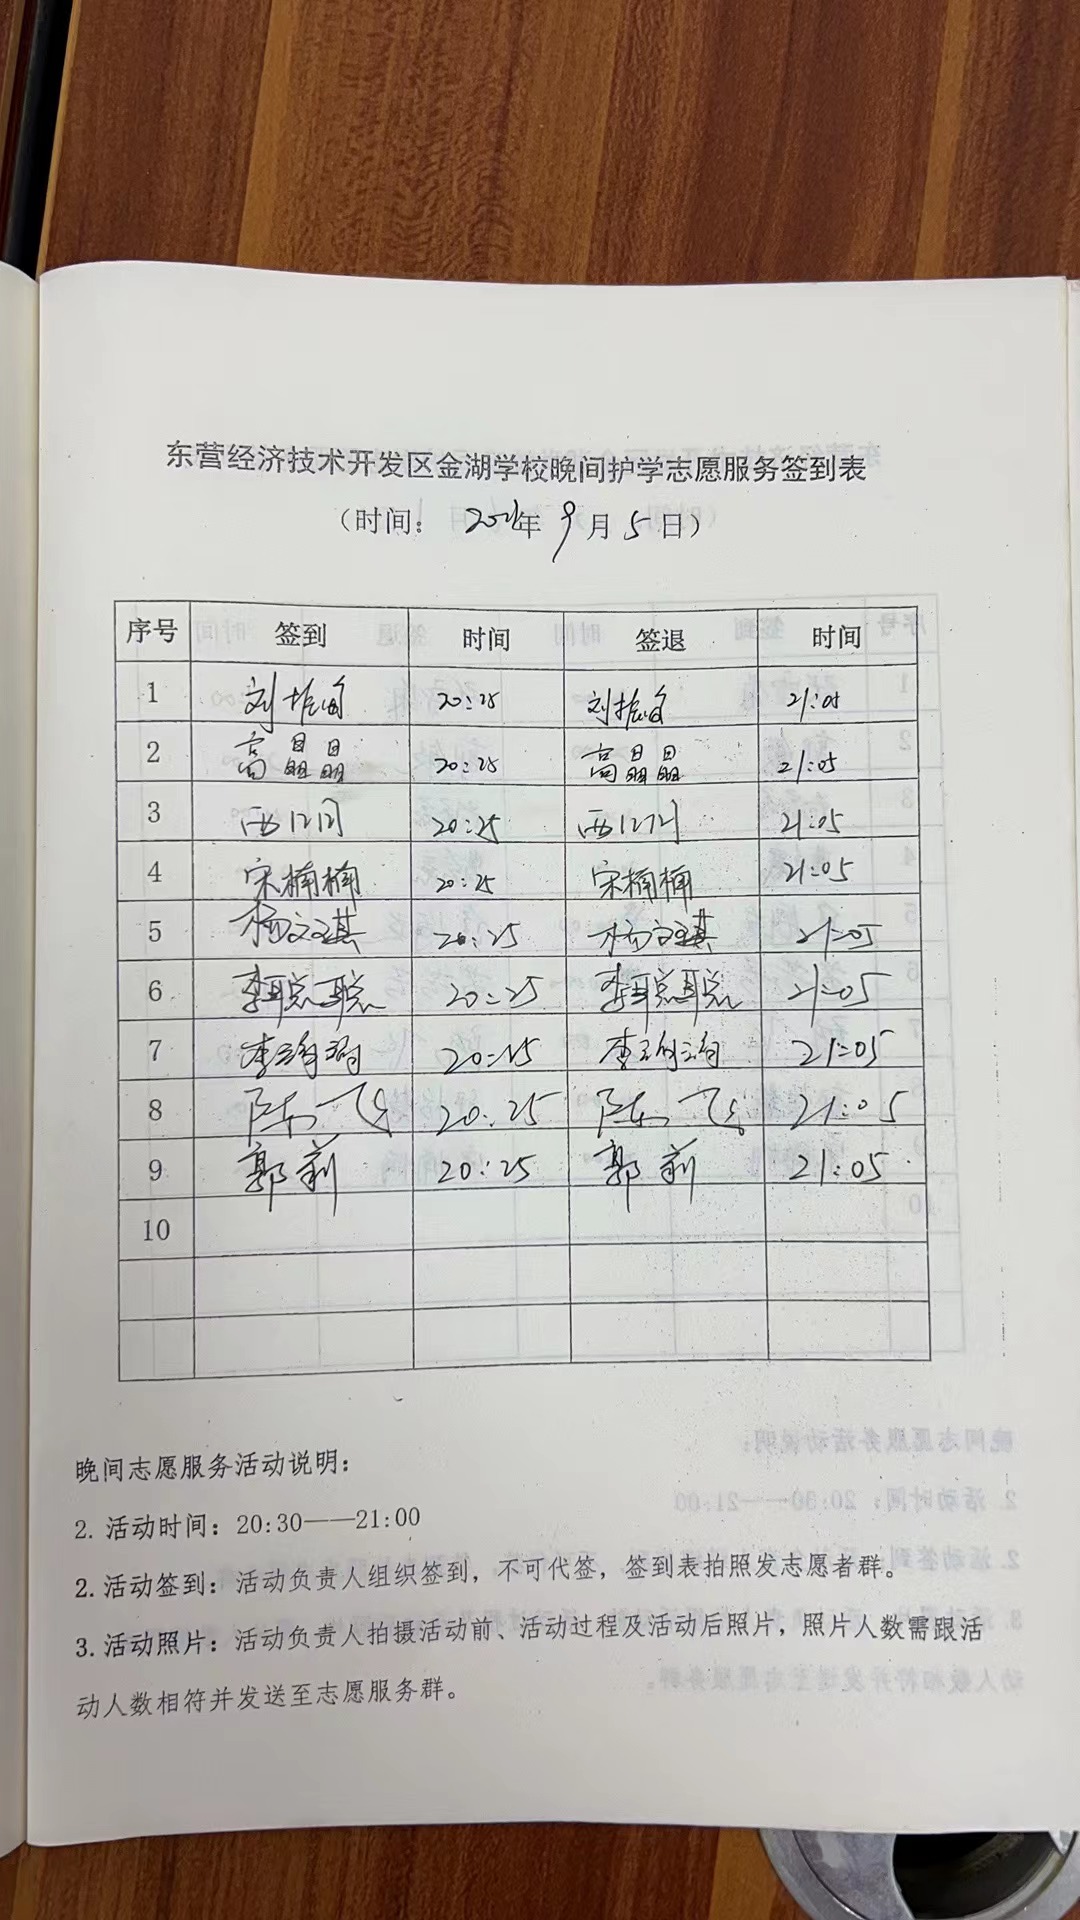 东营经济技术开发区金湖学校晚间护学志愿服务签到表
（时间： 年 9 月 5 日）
序号 签到 时间 签退 时间
1 刘 20:25 刘 21:05
2 高晶晶 20:25 高晶晶 21:05
3 20:25 21:05
4 宋楠楠 20:25 宋楠楠 21:05
5 杨文琪 20:25 杨文琪 21:05
6 李聪聪 20:25 李聪聪 21:05
7 李 20:25 李 21:05
8 陈飞 20:25 陈飞 21:05
9 郭莉 20:25 郭莉 21:05
10
晚间志愿服务活动说明：
2. 活动时间：20:30——21:00
2. 活动签到：活动负责人组织签到，不可代签，签到表拍照发志愿者群。
3. 活动照片：活动负责人拍摄活动前、活动过程及活动后照片，照片人数需跟活
动人数相符并发送至志愿服务群。